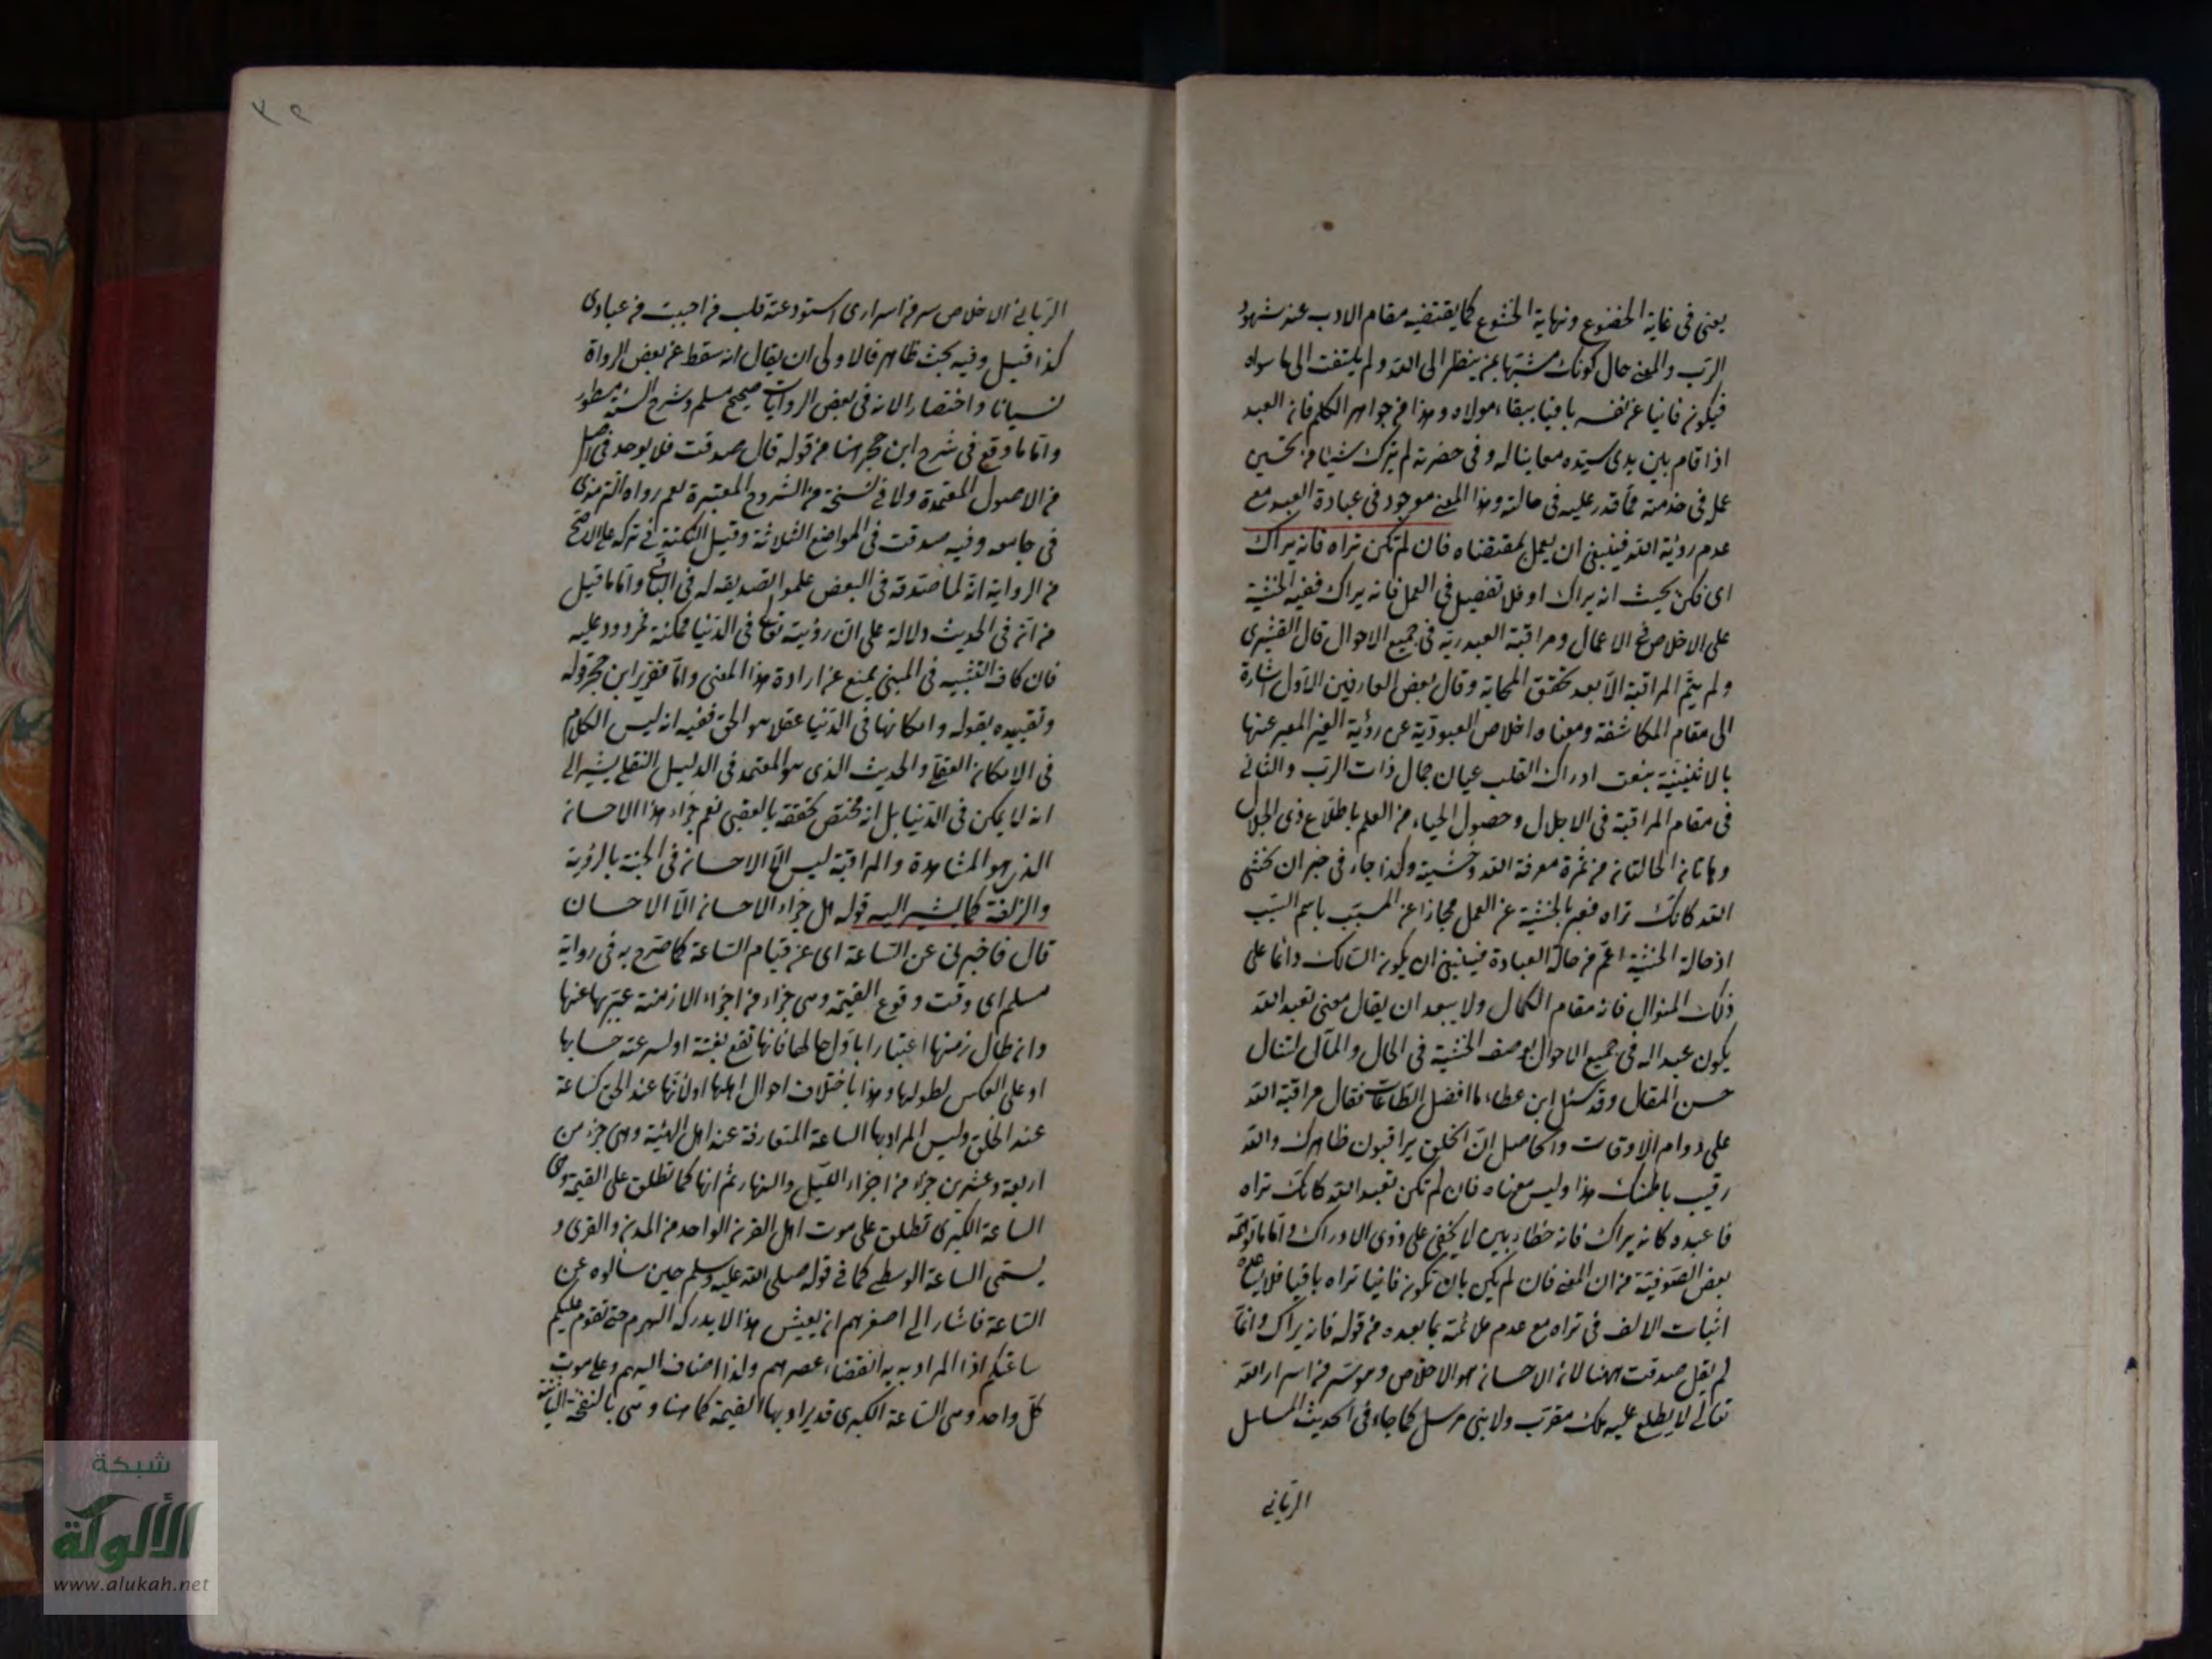 يعنى فى غاية الخضوع ونهاية الخشوع كما يقتضيه مقام الادب عند شهود
الرب والمعنى حال كونك مشبها بمن ينظر الى الله ولم يلتفت الى ما سواه
فيكون فانيا عن نفسه باقيا ببقاء مولاه وهذا من جواهر الكلم فان العبد
اذا قام بين يدى سيده معاينا له وفى حضرته لم يترك شيئا من تحسين
عمل فى خدمته مما قدر عليه فى حالته وهذا المعنى موجود فى عبادة العبد مع
عدم رؤية الله فينبغى ان يعمل بمقتضاه فان لم تكن تراه فانه يراك
اى فكن بحيث انه يراك او فلا تفصيل فى العمل فانه يراك ففيه الخشية
على الاخلاص فى الاعمال ومراقبة العبد ربه فى جميع الاحوال قال القشيرى
ولم يتم المراقبة الا بعد تحقق المحاسبة وقال بعض العارفين الاول اشارة
الى مقام المكاشفة ومعناه اخلاص العبودية عن رؤية الغير المعبر عنها
بالاثنينية بنعت ادراك القلب عيان جمال ذات الرب والثانى
فى مقام المراقبة فى الاجلال وحصول الحياء من العلم باطلاع ذى الجلال
وهاتان الحالتان من ثمرة معرفة الله وخشيته ولذا جاء فى خبر ان تخشى
الله كانك تراه فعبر بالخشية عن العمل مجازا عن المسبب باسم السبب
اذ حالة الخشية اعم من حالة العبادة فينبغى ان يكون السالك دائما على
ذلك المنوال فانه مقام الكمال ولا يبعد ان يقال معنى تعبد الله
يكون عبدا له فى جميع الاحوال بوصف الخشية فى الحال والمآل
حسن المقال وقد سئل ابن عطاء ما افضل الطاعات فقال مراقبة الله
على دوام الاوقات والحاصل ان الخلق يراقبون ظاهرك والله
رقيب باطنك هذا وليس معناه فان لم تكن تعبد الله كانك تراه
فاعبده كانه يراك فانه خطأ بين لا يخفى على ذوى الادراك واما ما توهمه
بعض الصوفية من ان المعنى فان لم يكن بان تكون فانيا تراه باقيا فلا يساعده
اثبات الالف فى تراه مع عدم ملائمة بما بعده من قوله فانه يراك وانما
لم يقل صدقت ههنا لان الاحسان هو الاخلاص وهو سر من اسرار الله
تعالى لا يطلع عليه ملك مقرب ولا نبى مرسل كما جاء فى الحديث المسلسل
الربانى
٣٩
الربانى الاخلاص سر من اسرارى استودعته قلب من احببت من عبادى
كذا قيل وفيه بحث ظاهر فالاولى ان يقال انه سقط عن بعض الرواة
نسيانا واختصارا لانه فى بعض الروايات صحيح مسلم وشرح السنة مسطور
واما ما وقع فى شرح ابن حجر هنا من قوله قال صدقت فلا يوجد فى اصل
من الاصول المعتمدة ولا فى نسخة من الشروح المعتبرة نعم رواه الترمذى
فى جامعه وفيه صدقت فى المواضع الثلاثة وقيل النكتة فى تركه على الاصح
من الرواية انه لما صدقه فى البعض علموا تصديقه له فى الباقى واما ما قيل
من انه فى الحديث دلالة على ان رؤيته تعالى فى الدنيا ممكنة فمردود عليه
فان كاف التشبيه فى المبنى يمنع عن ارادة هذا المعنى واما تقرير ابن حجر قوله
وتقييده بقوله وامكانها فى الدنيا عقلا هو الحق ففيه انه ليس الكلام
فى الامكان العقلى والحديث الذى هو المعتمد فى الدليل النقلى يشير الى
انه لا يمكن فى الدنيا بل انه مختص تحققه بالعقبى نعم جزاء هذا الاحسان
الذى هو المشاهدة والمراقبة ليس الا الاحسان فى الجنة بالرؤية
والزلفة كما يشير اليه قوله هل جزاء الاحسان الا الاحسان
قال فاخبرنى عن الساعة اى عن قيام الساعة كما صرح به فى رواية
مسلم اى وقت وقوع القيمة وهى جزاء من اجزاء الازمنة عبر بها عنها
وان طال زمنها اعتبارا باول حالها فانها تقع بغتة او لسرعة حسابها
او على العكس لطولها وهذا باختلاف احوال اهلها او لانها عند الحق كساعة
عند الخلق وليس المراد بها الساعة المتعارفة عند اهل الهيئة وهى جزء من
اربعة وعشرين جزء من اجزاء الليل والنهار ثم انها كما تطلق على القيمة وهى
الساعة الكبرى تطلق على موت اهل القرن الواحد من المدن والقرى و
يسمى الساعة الوسطى كما فى قوله صلى الله عليه وسلم حين سألوه عن
الساعة فاشار الى اصغرهم ان يعيش هذا لا يدركه الهرم حتى تقوم عليكم
ساعتكم اذ المراد به انقضاء عصرهم ولذا اضاف اليهم وعلى موت
كل واحد وهى الساعة الكبرى قد يراد بها القيمة كما هنا وهى بالنفخة الثانية
شبكة
الألوكة
www.alukah.net